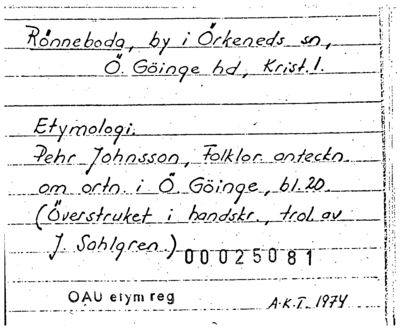 Rönneboda, by i Örkeneds sn,
Ö. Göinge hd, Krist. l.
Etymologi.
Pehr Johnsson, Folklor. anteckn.
om ortn. i Ö. Göinge, bl. 20.
(Överstruket i handskr., trol. av
J. Sahlgren.) 00025081
OAU etym reg A.K.T. 1974